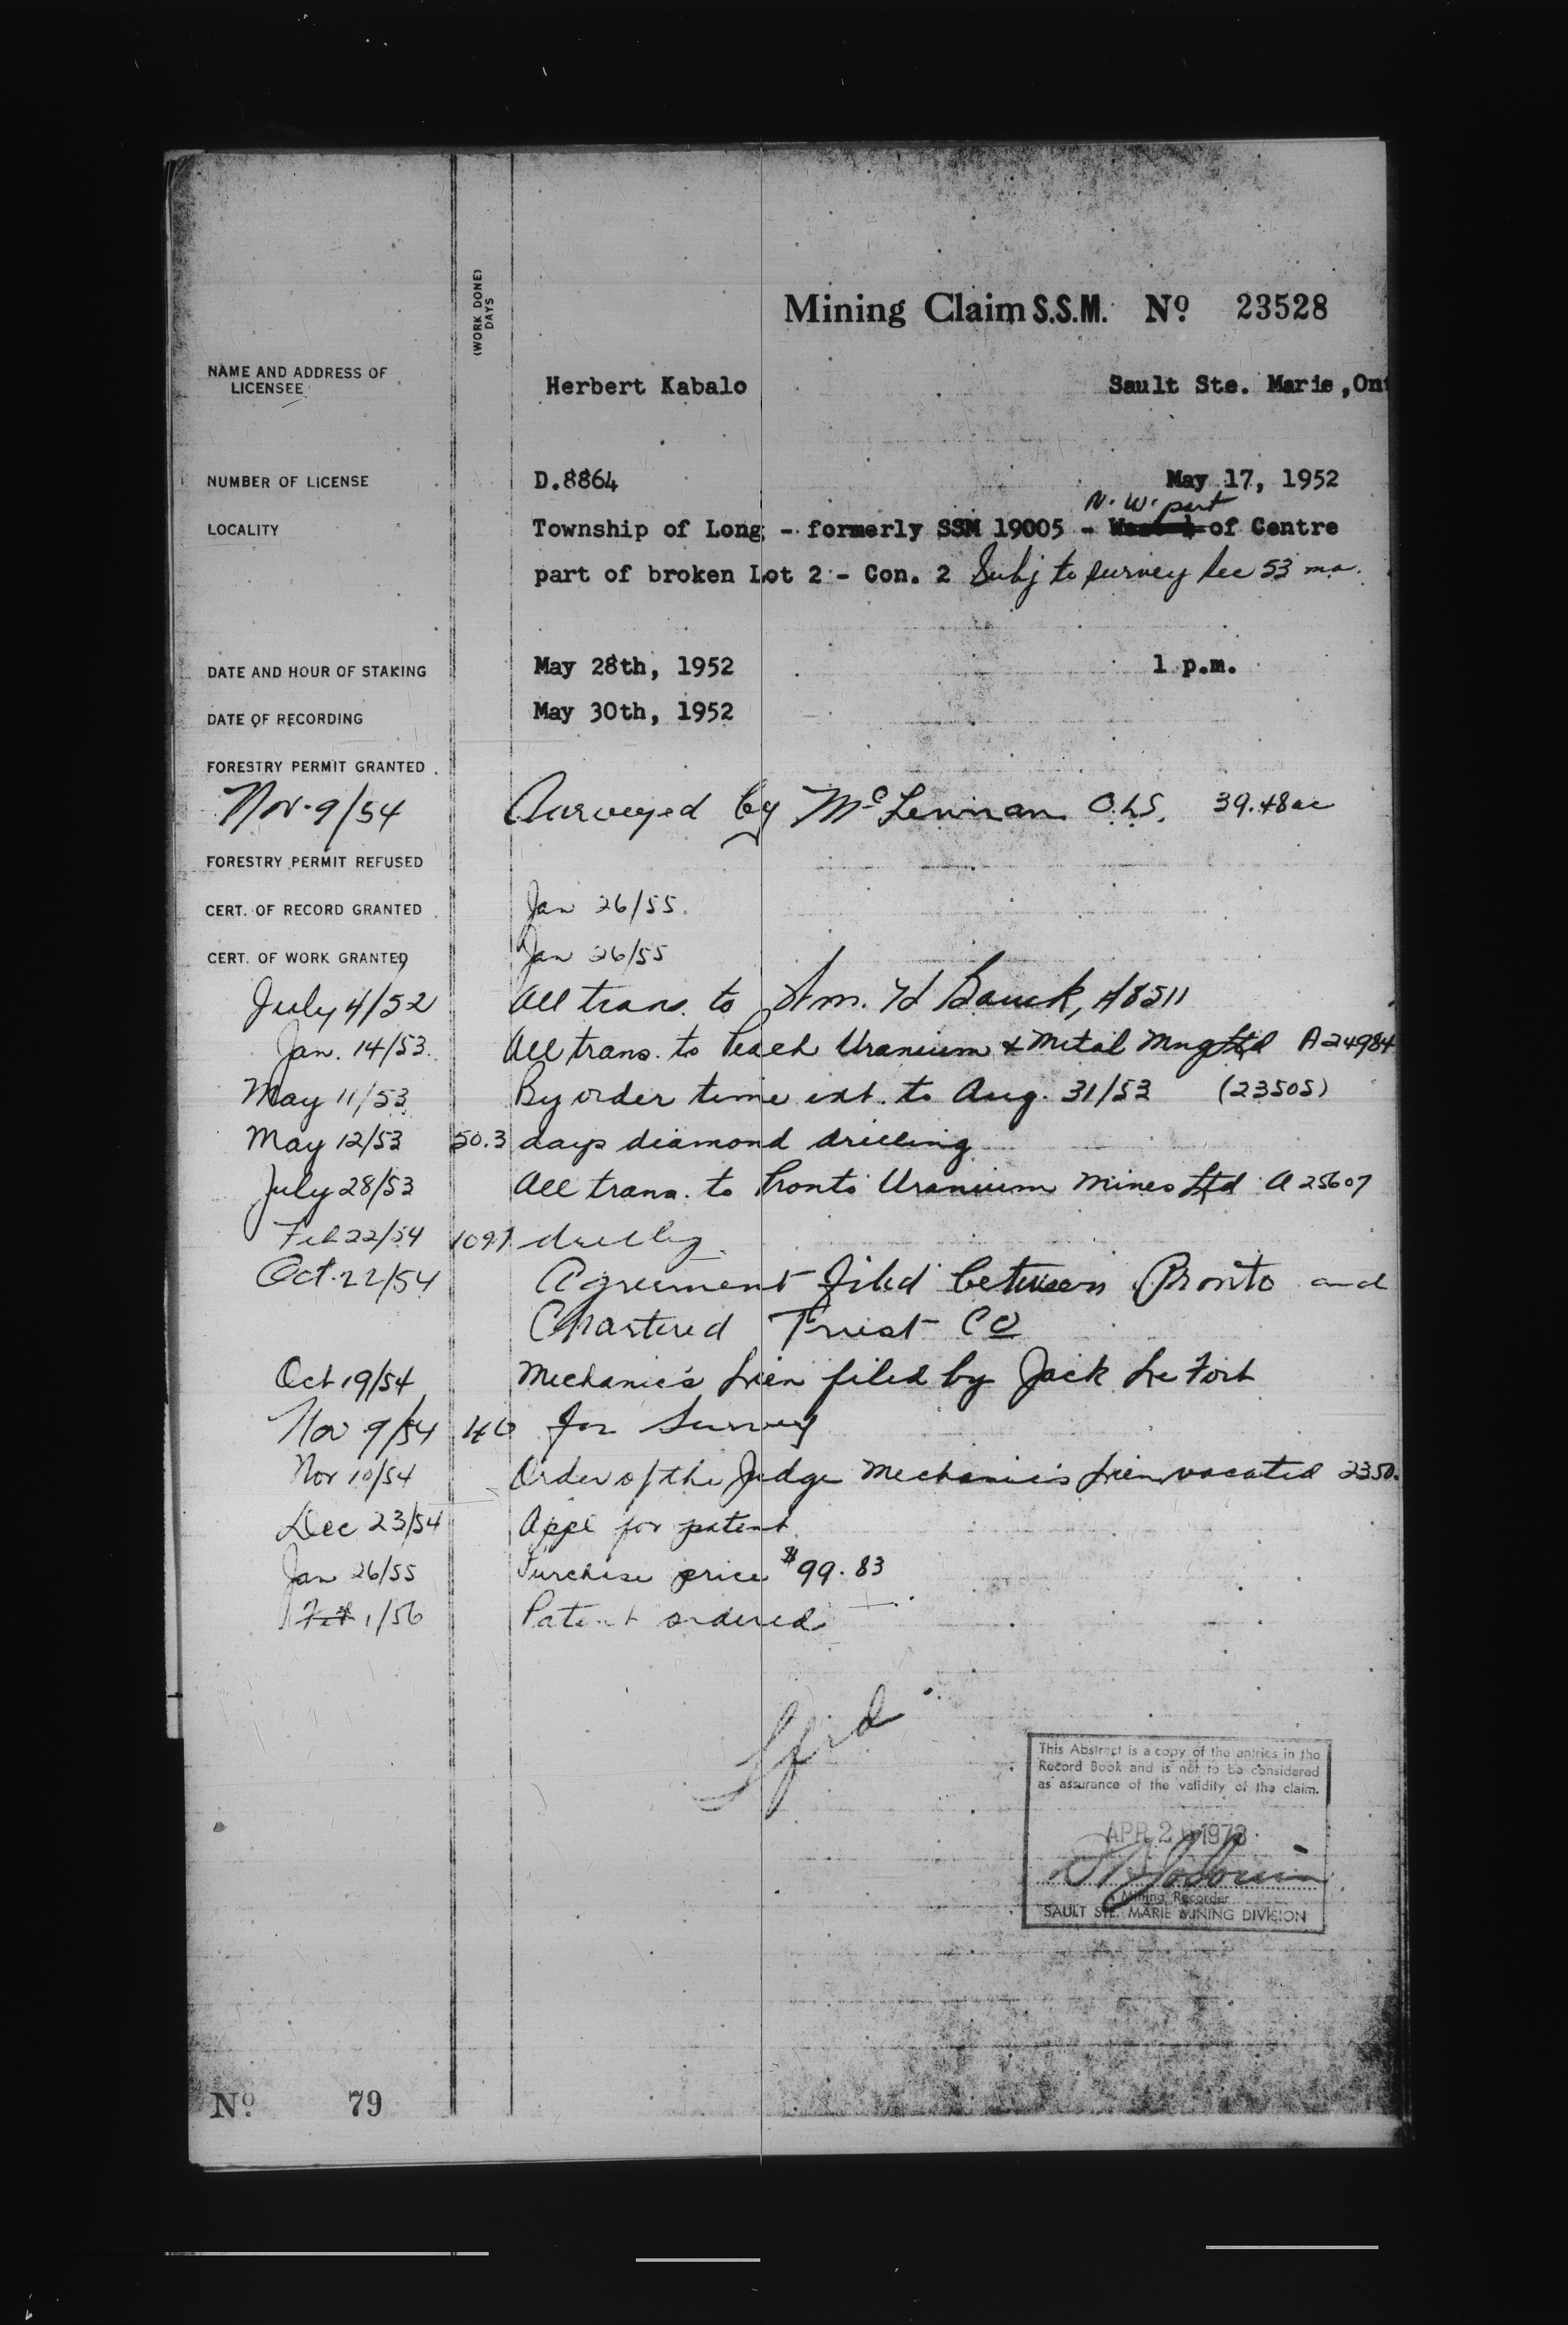 (WORK DONE)
DAYS
Mining Claim S.S.M. Nº 23528
NAME AND ADDRESS OF
LICENSEE
Herbert Kabalo Sault Ste. Marie, Ont
NUMBER OF LICENSE D.8864 May 17, 1952
N.W. part
LOCALITY Township of Long - formerly SSM 19005 - of Centre
part of broken Lot 2 - Con. 2 Subj to survey Sec 53 ma.
DATE AND HOUR OF STAKING May 28th, 1952 1 p.m.
DATE OF RECORDING May 30th, 1952
FORESTRY PERMIT GRANTED
Nov. 9/54 Surveyed by McLennan O.L.S. 39.48 ac
FORESTRY PERMIT REFUSED
CERT. OF RECORD GRANTED Jan 26/55.
CERT. OF WORK GRANTED Jan 26/55
July 4/52 All trans. to Wm. H Bouck, A8511
Jan. 14/53. All trans. to Peach Uranium & Metal Mng Ltd A24984
May 11/53 By order time ext. to Aug. 31/53 (23505)
May 12/53 50.3 days diamond drilling
July 28/53 All trans. to Pronto Uranium Mines Ltd A25607
Feb 22/54 109.7 drilling.
Oct. 22/54 Agreement filed between Pronto and
Chartered Trust Co
Oct 19/54 Mechanic's Lien filed by Jack Le Fort
Nov 9/54 40 for Survey
Nov 10/54 Order of the Judge Mechanic's Lien vacated 2350
Dec 23/54 Appl for patent
Jan 26/55 Purchase price $99.83
Feb 1/56 Patent ordered
This Abstract is a copy of the entries in the
Record Book and is not to be considered
as assurance of the validity of the claim.
APR 2 1973
Mining Recorder
SAULT STE. MARIE MINING DIVISION
Nº 79